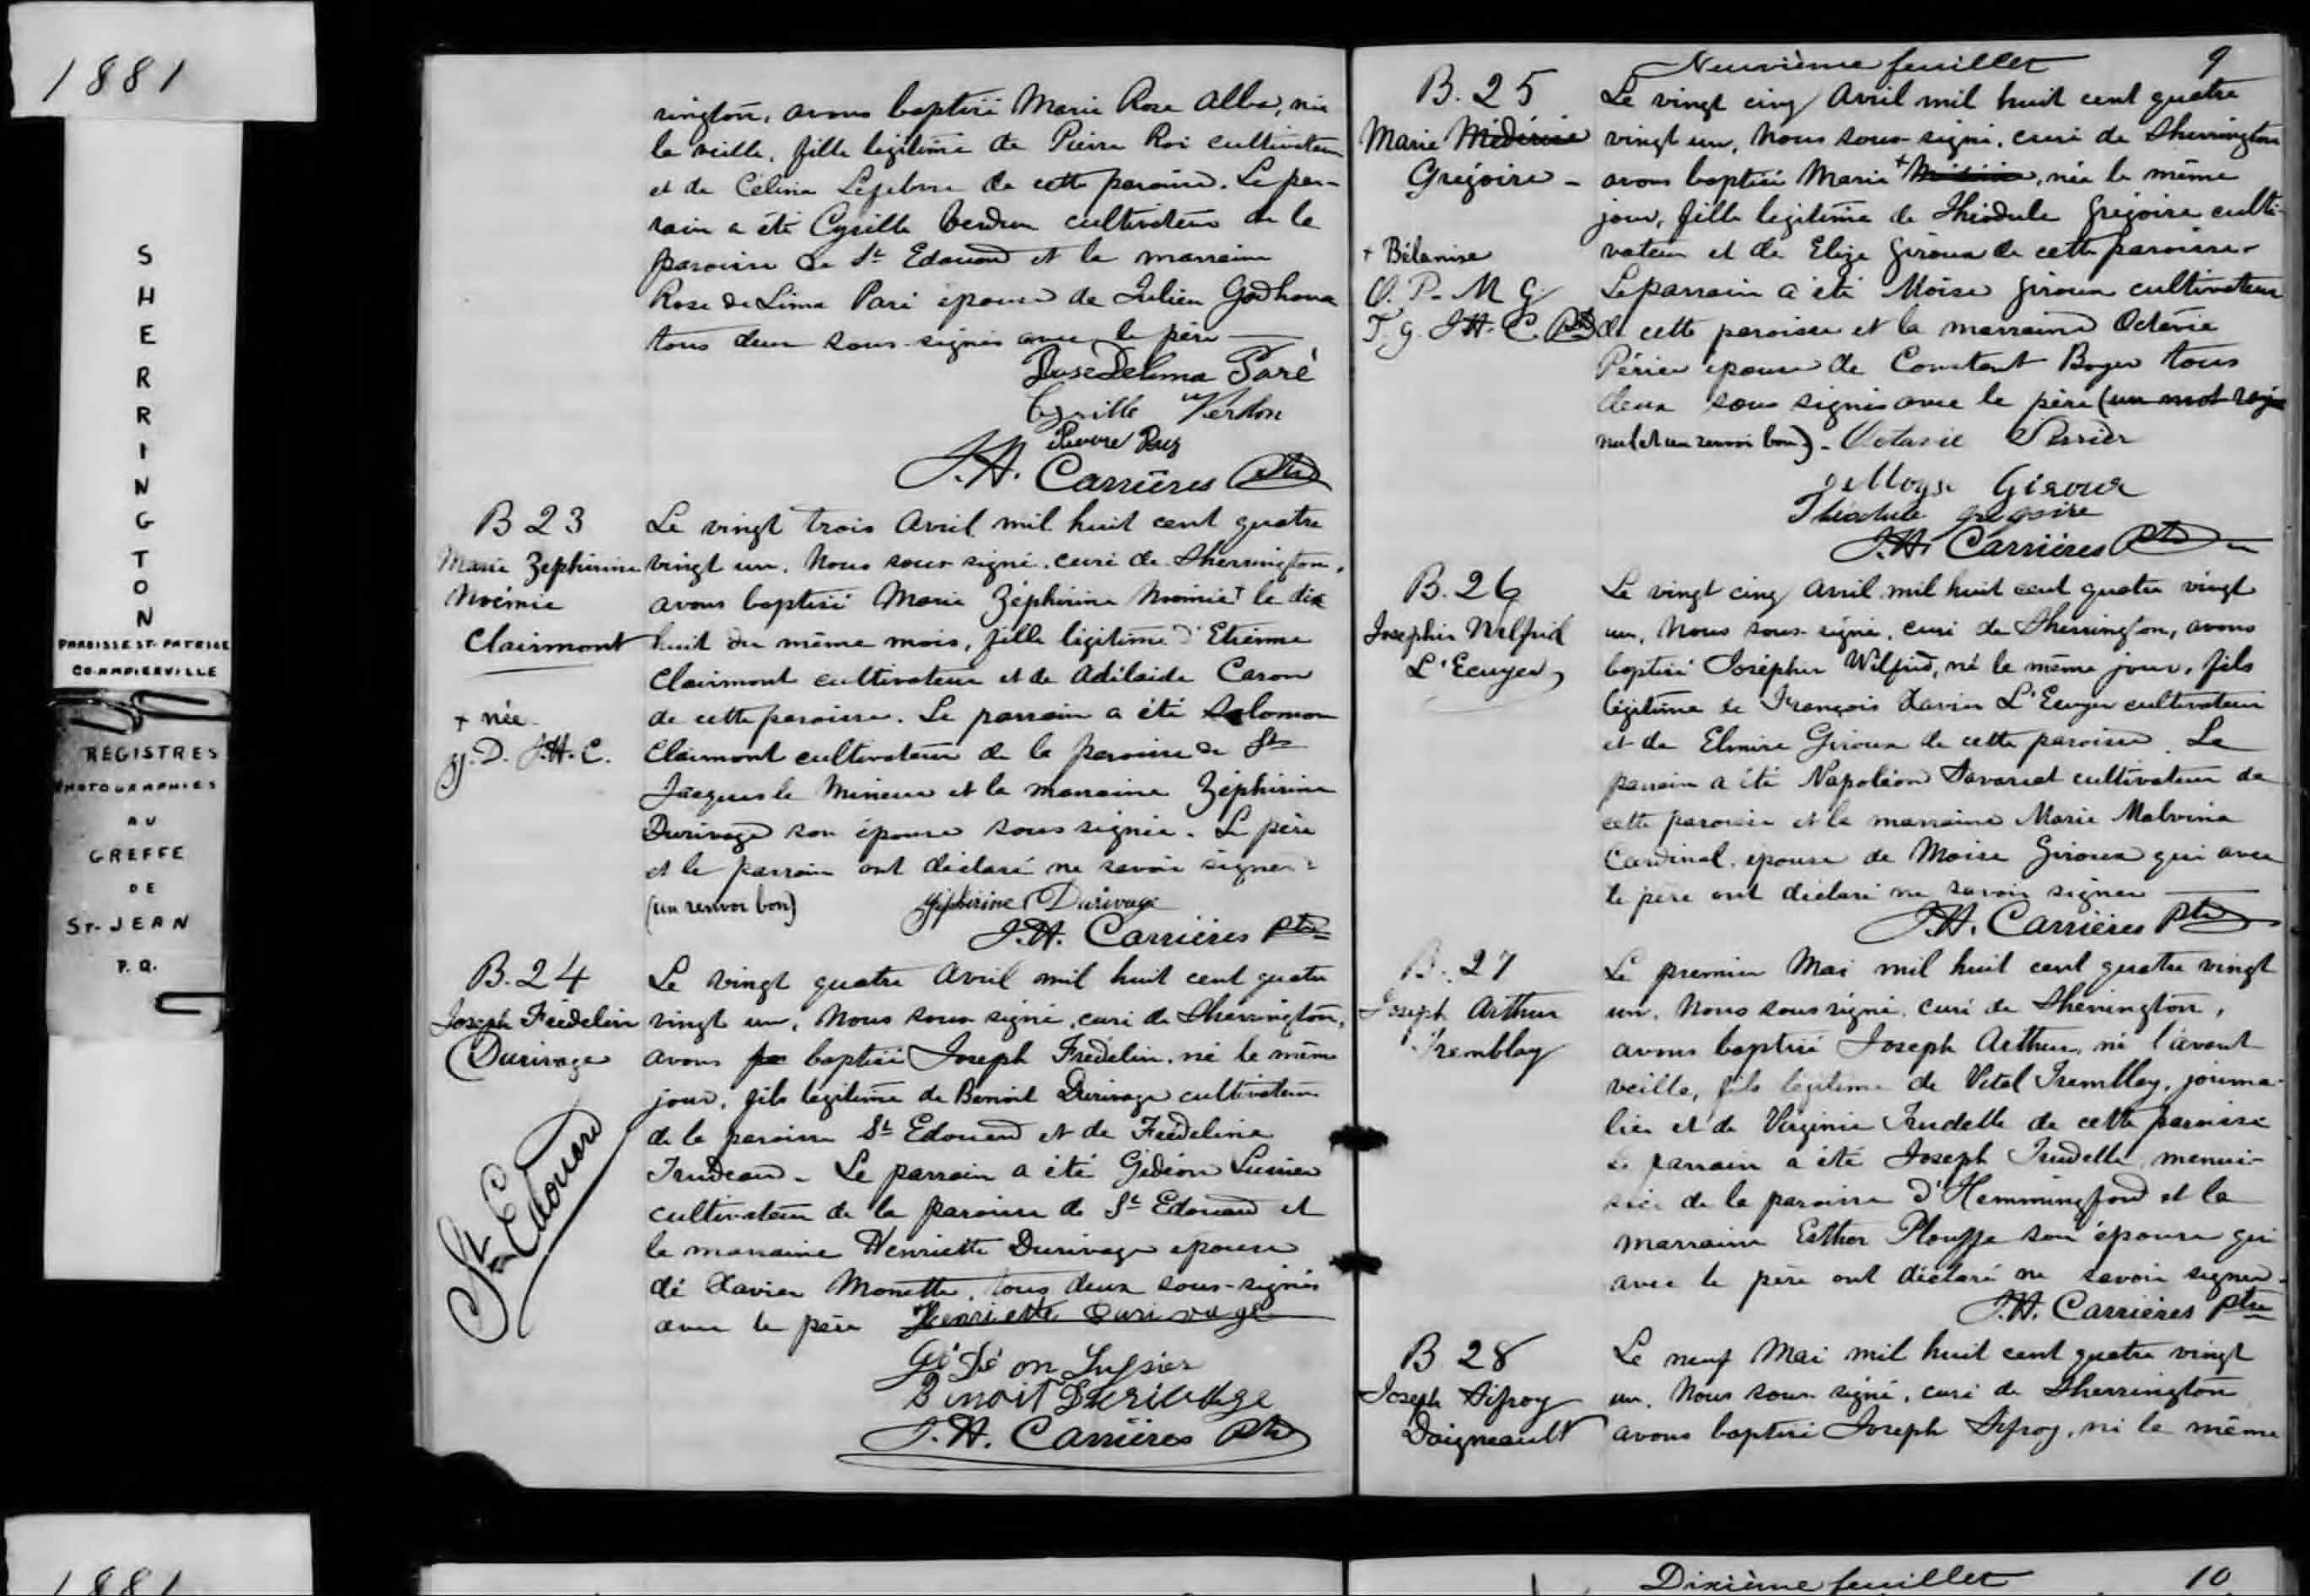 1881
SHERRINGTON
PAROISSE ST-PATRICE
CO. NAPIERVILLE
REGISTRES
PHOTOGRAPHIES
AU
GREFFE
DE
ST-JEAN
P.Q.
rington, avons baptisé Marie Rose Alba, née
la veille, fille légitime de Pierre Roi cultivateur
et de Célina Lefebvre de cette paroisse. Le par-
rain a été Cyrille Verdon cultivateur de la
paroisse de St Edouard et la marraine
Rose de Lima Paré épouse de Julien
tous deux sous-signés avec le père
Rose Delima Paré
Cyrille Verdon
Pierre
J.H. Carrières Ptre
B 23
Marie Zéphirine
Noémie
Clairmont
+ née
J.H.C.
Le vingt trois Avril mil huit cent quatre
vingt un, Nous sous-signé, curé de Sherrington,
avons baptisé Marie Zéphirine Noémie + le dix
huit du même mois, fille légitime d'Etienne
Clairmont cultivateur et de Adélaide Caron
de cette paroisse. Le parrain a été Salomon
Clairmont cultivateur de la paroisse de St
Jacques le Mineur et la marraine Zéphirine
Durivage son épouse sous signée. Le père
et le parrain ont déclaré ne savoir signer
(un renvoi bon) Zéphirine Durivage
J.H. Carrières Ptre
B. 24
Joseph Frédelin
Durivage
St Edouard
Le vingt quatre Avril mil huit cent quatre
vingt un, Nous sous-signé, curé de Sherrington,
avons baptisé Joseph Frédelin, né le même
jour, fils légitime de Benoit Durivage cultivateur
de la paroisse St Edouard et de Frédeline
Trudeau. Le parrain a été Gédéon Lussier
cultivateur de la paroisse de St Edouard et
la marraine Henriette Durivage épouse
de Xavier Monette, tous deux sous-signés
avec le père Henriette Durivage
Gédéon Lussier
Benoit Durivage
J.H. Carrières Ptre
Neuvième feuillet 9
B. 25
Marie Médérise
Grégoire
+ Bélanise
O. P. M G
T. G. J.H. C. Ptre
Le vingt cinq Avril mil huit cent quatre
vingt un, Nous sous-signé, curé de Sherrington
avons baptisé Marie +, née le même
jour, fille légitime de Théodule Grégoire culti-
vateur et de Elize Giroux de cette paroisse.
Le parrain a été Moise Giroux cultivateur
de cette paroisse et la marraine Octavie
Périer épouse de Constant Boyer tous
deux sous signés avec le père (un mot rayé
nul et un renvoi bon). Octavie Perrier
Moyse Giroux
Théodule Grégoire
J.H. Carrières Ptre
B. 26
Josephin Wilfrid
L'Ecuyer
Le vingt cinq Avril mil huit cent quatre vingt
un, Nous sous-signé, curé de Sherrington, avons
baptisé Joséphin Wilfrid, né le même jour, fils
légitime de François Xavier L'Ecuyer cultivateur
et de Elmire Giroux de cette paroisse. Le
parrain a été Napoléon Savariat cultivateur de
cette paroisse et la marraine Marie Malvina
Cardinal épouse de Moise Giroux qui avec
le père ont déclaré ne savoir signer
J.H. Carrières Ptre
B. 27
Joseph Arthur
Tremblay
Le premier Mai mil huit cent quatre vingt
un, Nous sous signé, curé de Sherrington,
avons baptisé Joseph Arthur, né l'avant
veille, fils légitime de Vital Tremblay, journa-
lier et de Virginie Trudelle de cette paroisse
Le parrain a été Joseph Trudelle menui-
sier de la paroisse d'Hemmingford et la
marraine Esther Plouffe son épouse qui
avec le père ont déclaré ne savoir signer.
J.H. Carrières Ptre
B 28
Joseph Sifroy
Daigneault
Le neuf Mai mil huit cent quatre vingt
un, Nous sous-signé, curé de Sherrington
avons baptisé Joseph Sifroy, né le même
1881
Dixième feuillet 10